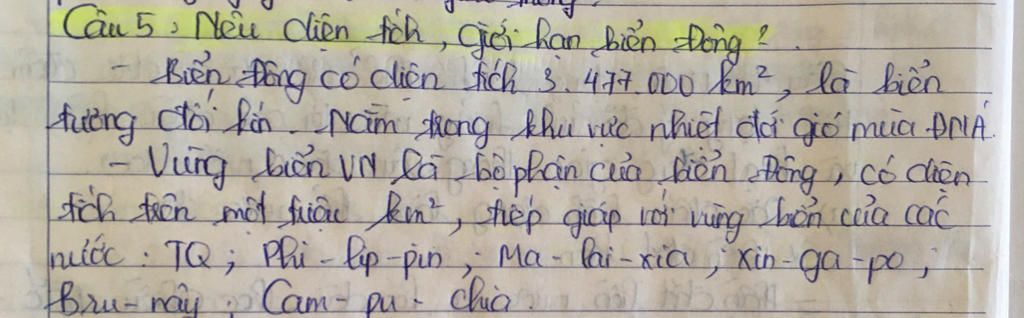 Câu 5: Nêu diện tích, giới hạn biển Đông?
- Biển Đông có diện tích 3.477.000 km², là biển
tương đối kín. Nằm trong khu vực nhiệt đới gió mùa ĐNÁ.
- Vùng biển VN là bộ phận của biển Đông, có diện
tích trên một triệu km², tiếp giáp với vùng biển của các
nước: TQ; Phi-lip-pin; Ma-lai-xia; Xin-ga-po;
Bru-nây; Cam-pu-chia.